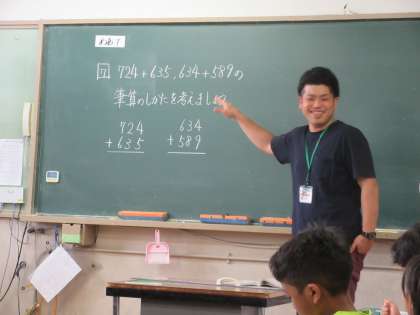 めあて
① 724+635, 634+589の
筆算のしかたを考えましょう。
724
+635
634
+589